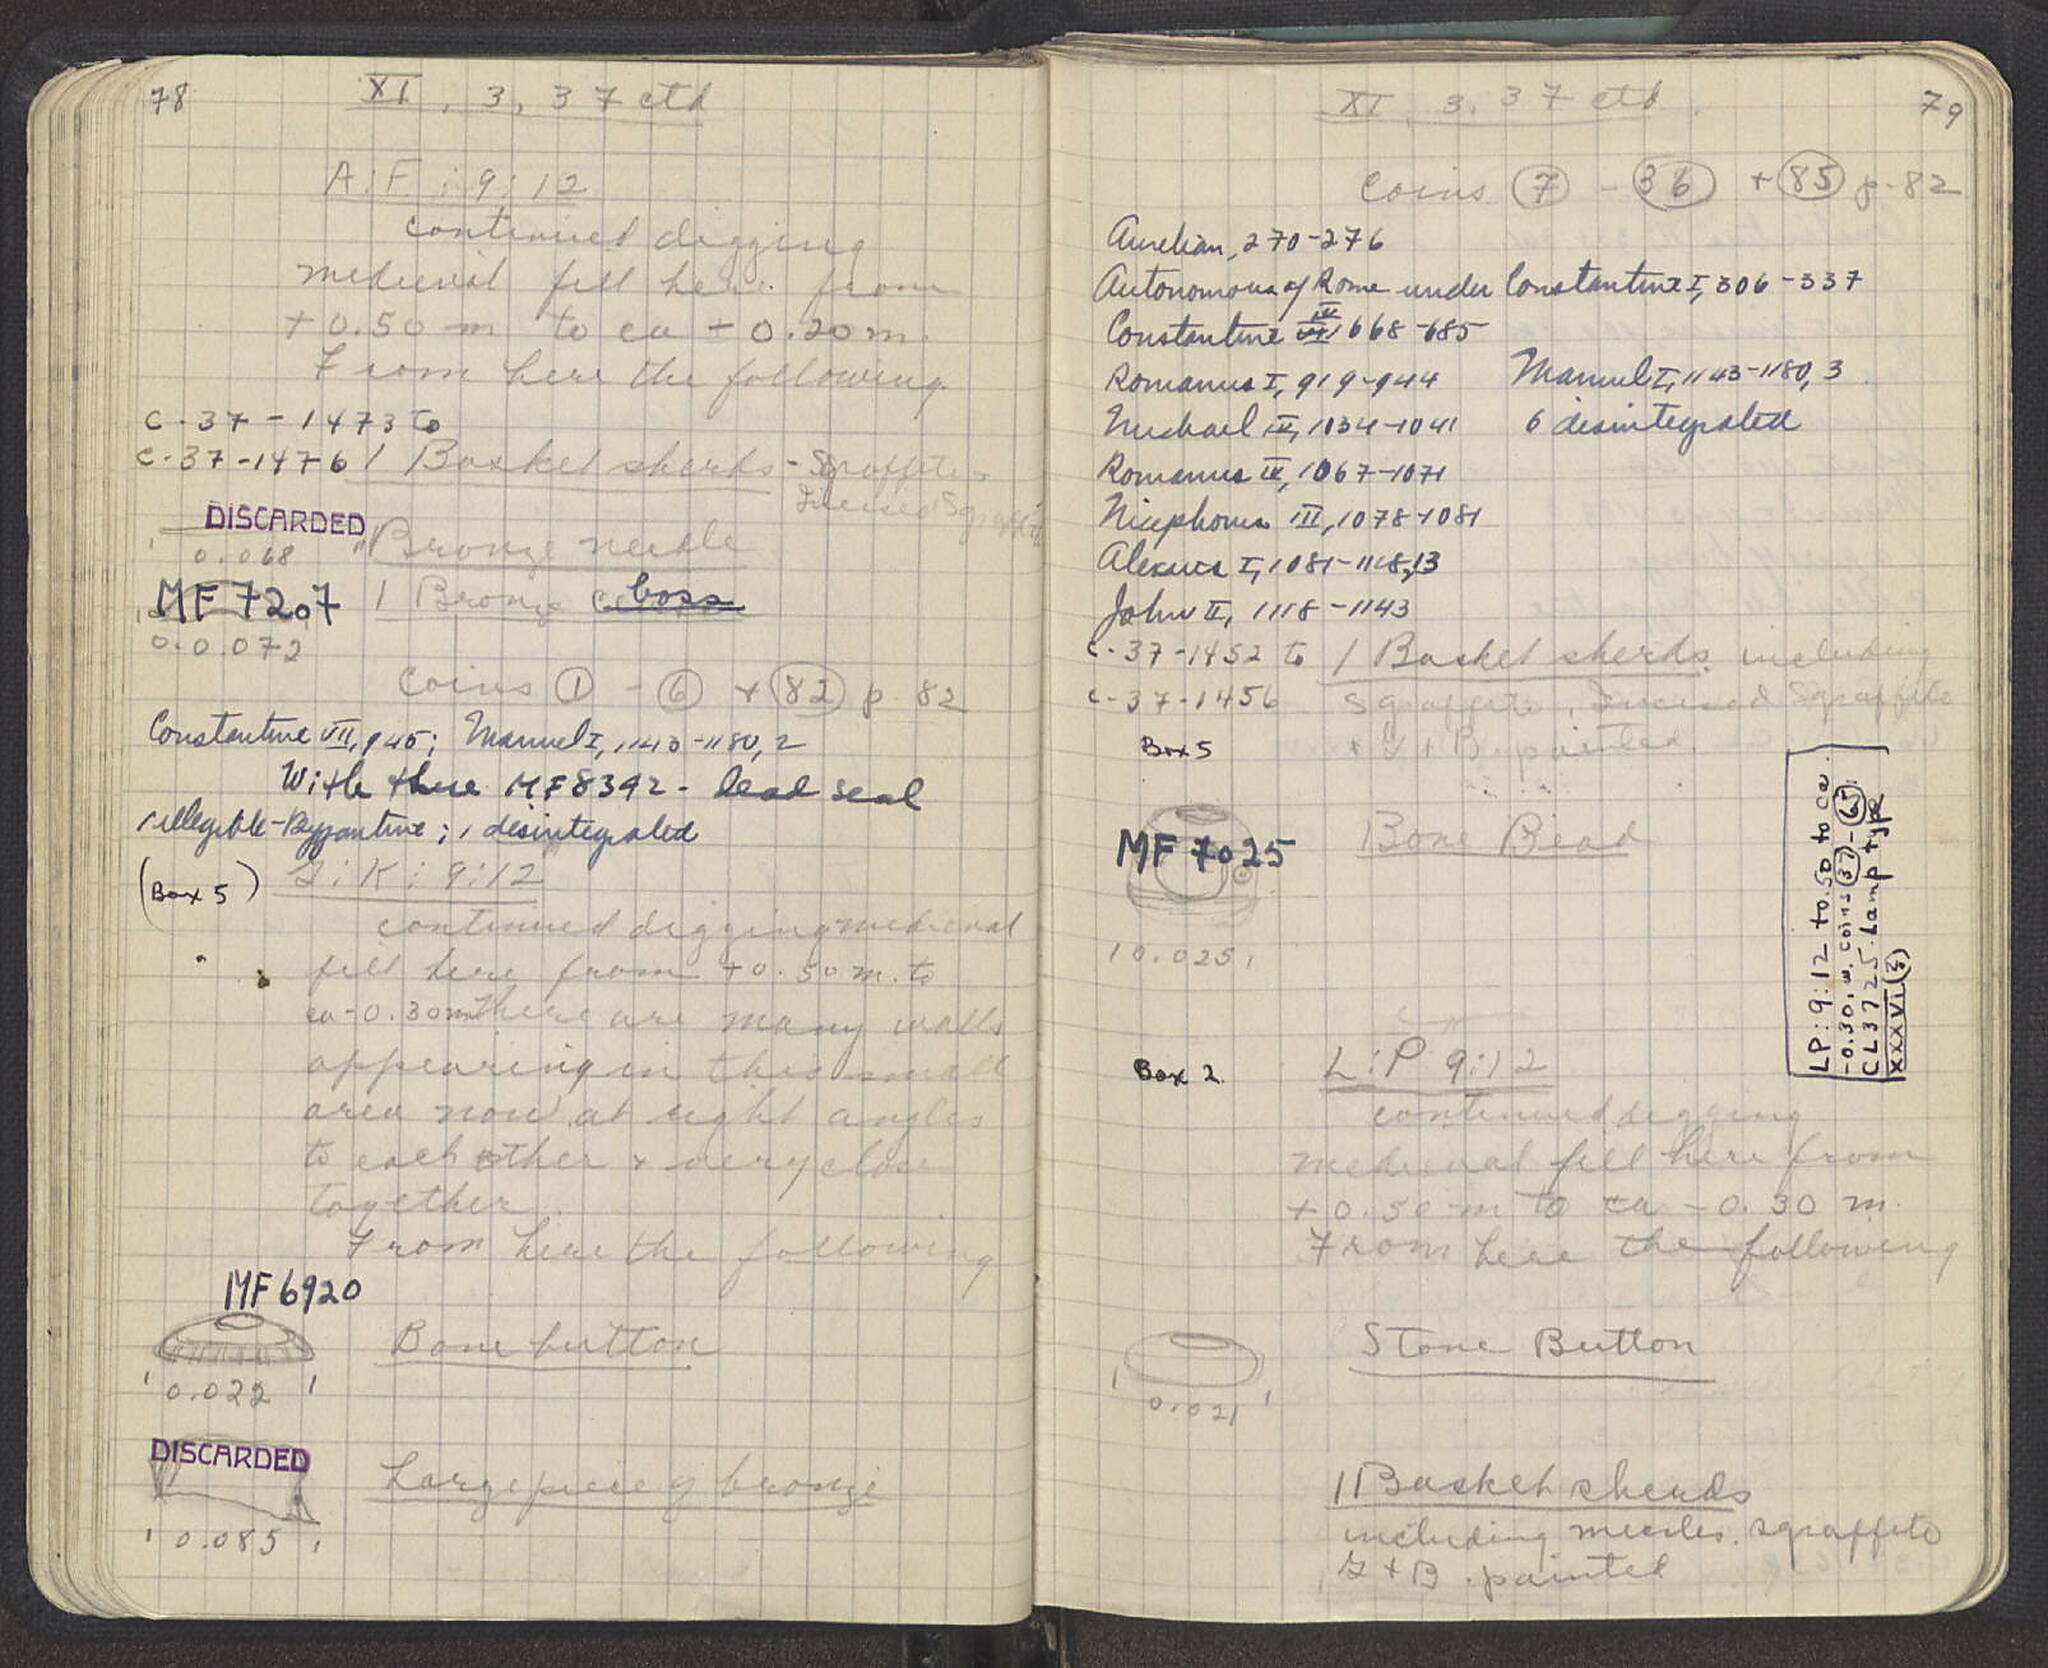 78
XI, 3, 37 ctd
A:F:9:12
continued digging
medieval fill here from
+0.50 m to ca +0.20 m.
From here the following.
C-37-1473 to
C-37-1476 1 Basket sherds - Sgraffito -
Incised Sgraffito
DISCARDED
Bronze needle
0.068
MF 7207 1 Bronze boss
0.0072
Coins 1 - 6 + 82 p. 82
Constantine VII, 945; Manuel I, 1143-1180, 2
With these MF 8392 - lead seal
1 illegible - Byzantine; 1 disintegrated
(Box 5) G:K:9:12
continued digging medieval
fill here from +0.50 m. to
ca -0.30 m There are many walls
appearing in this small
area now at right angles
to each other + very close
together.
From here the following
MF 6920
Bone button
0.022
DISCARDED
Large piece of bronze
0.085
XI, 3, 37 ctd
79
Coins 7 - 36 + 85 p. 82
Aurelian, 270-276
Autonomous of Rome under Constantine I, 306-337
Constantine IV 668-685
Romanus I, 919-944 Manuel I, 1143-1180, 3
Michael IV, 1034-1041 6 disintegrated
Romanus IV, 1067-1071
Nicephorus III, 1078-1081
Alexius I, 1081-1118, 13
John II, 1118-1143
C-37-1452 to 1 Basket sherds including
C-37-1456 Sgraffito, Incised Sgraffito
Box 5 + G + B. painted.
MF 7025 Bone Bead
0.025
LP:9:12 +0.50 to ca.
-0.30. w. coins 37 - 65
CL 3725 Lamp type
XXXVI (3)
Box 2 L:P 9:12
continued digging
medieval fill here from
+0.50 m to ca -0.30 m.
From here the following
Stone Button
0.021
1 Basket sherds
including measles. sgraffito
G + B. painted